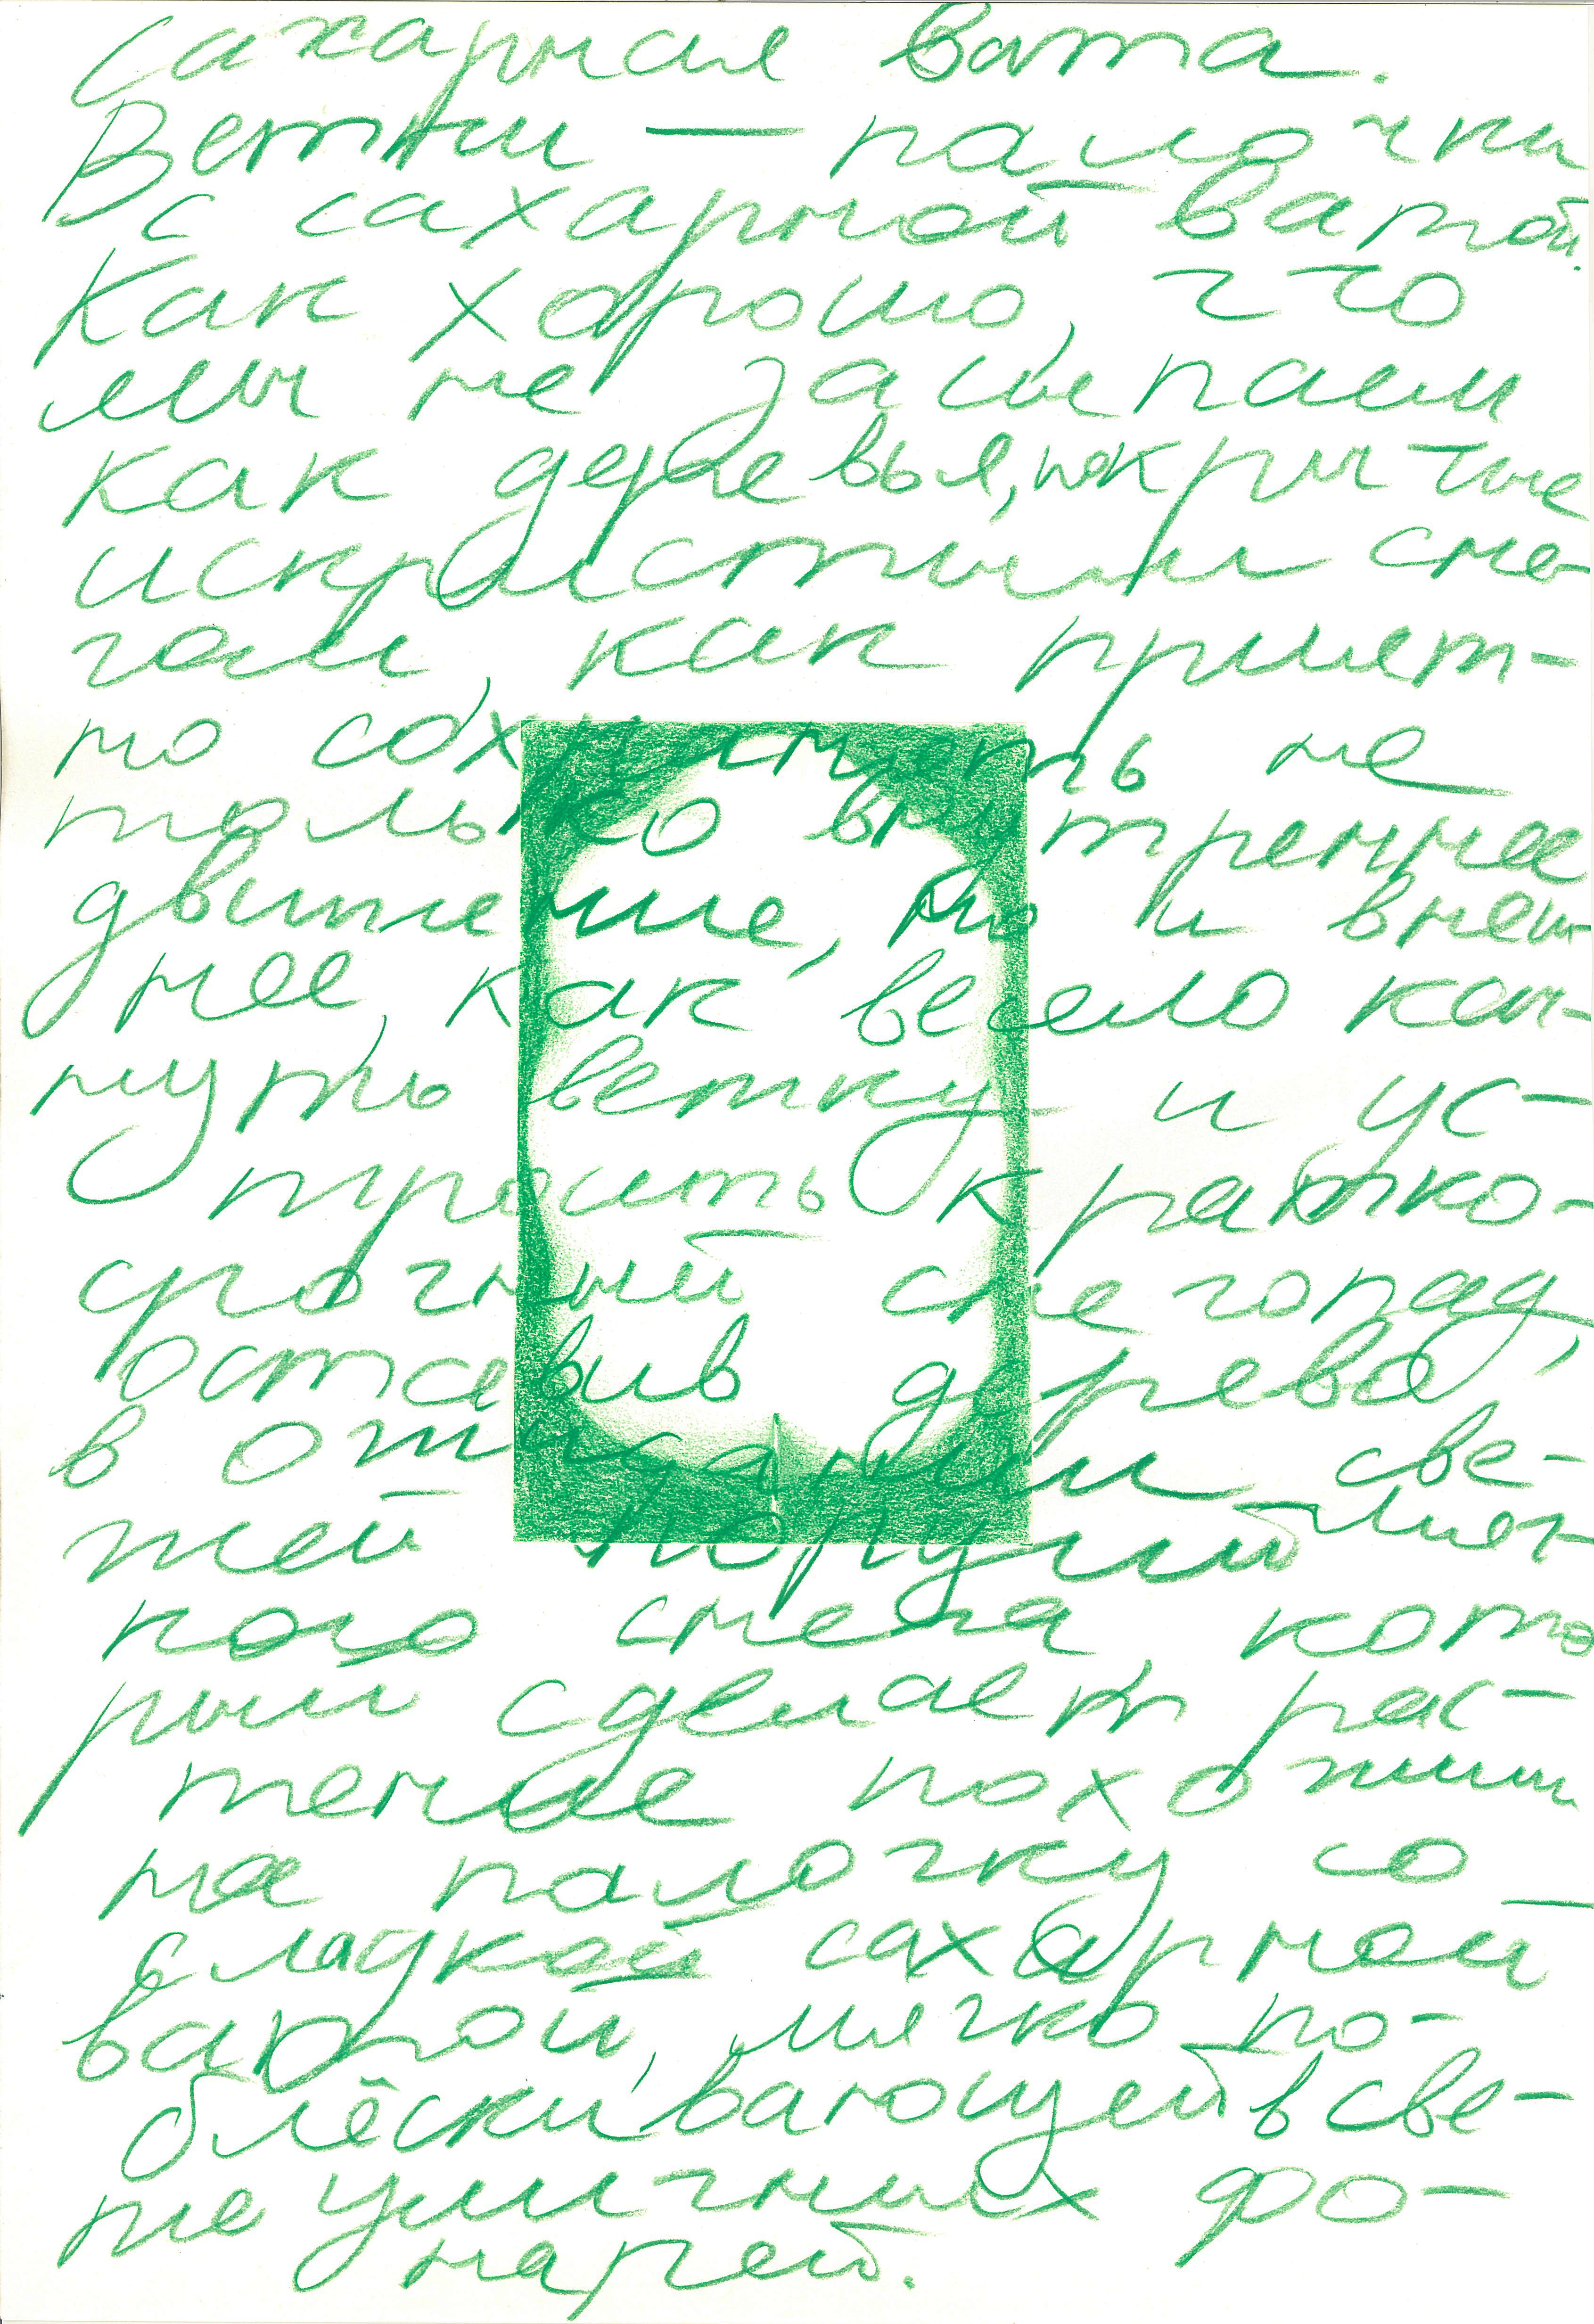 Сахарная вата.
Ветки — палочки
с сахарной ватой.
Как хорошо, что
мы не засыпаем
как деревья, покрытые
искристым сне-
гом, как прият-
но сохранять не
только внутреннее
движение, но и внеш-
нее, как весело кач-
нуть ветку и ус-
троить кратко-
срочный снегопад,
оставив дерево
в ожидании све-
жей порции мяг-
кого снега, кото
рый сделает рас-
тение похожим
на палочку со
сладкой сахарной
ватой, мягко по-
блёскивающей в све-
те уличных фо-
нарей.